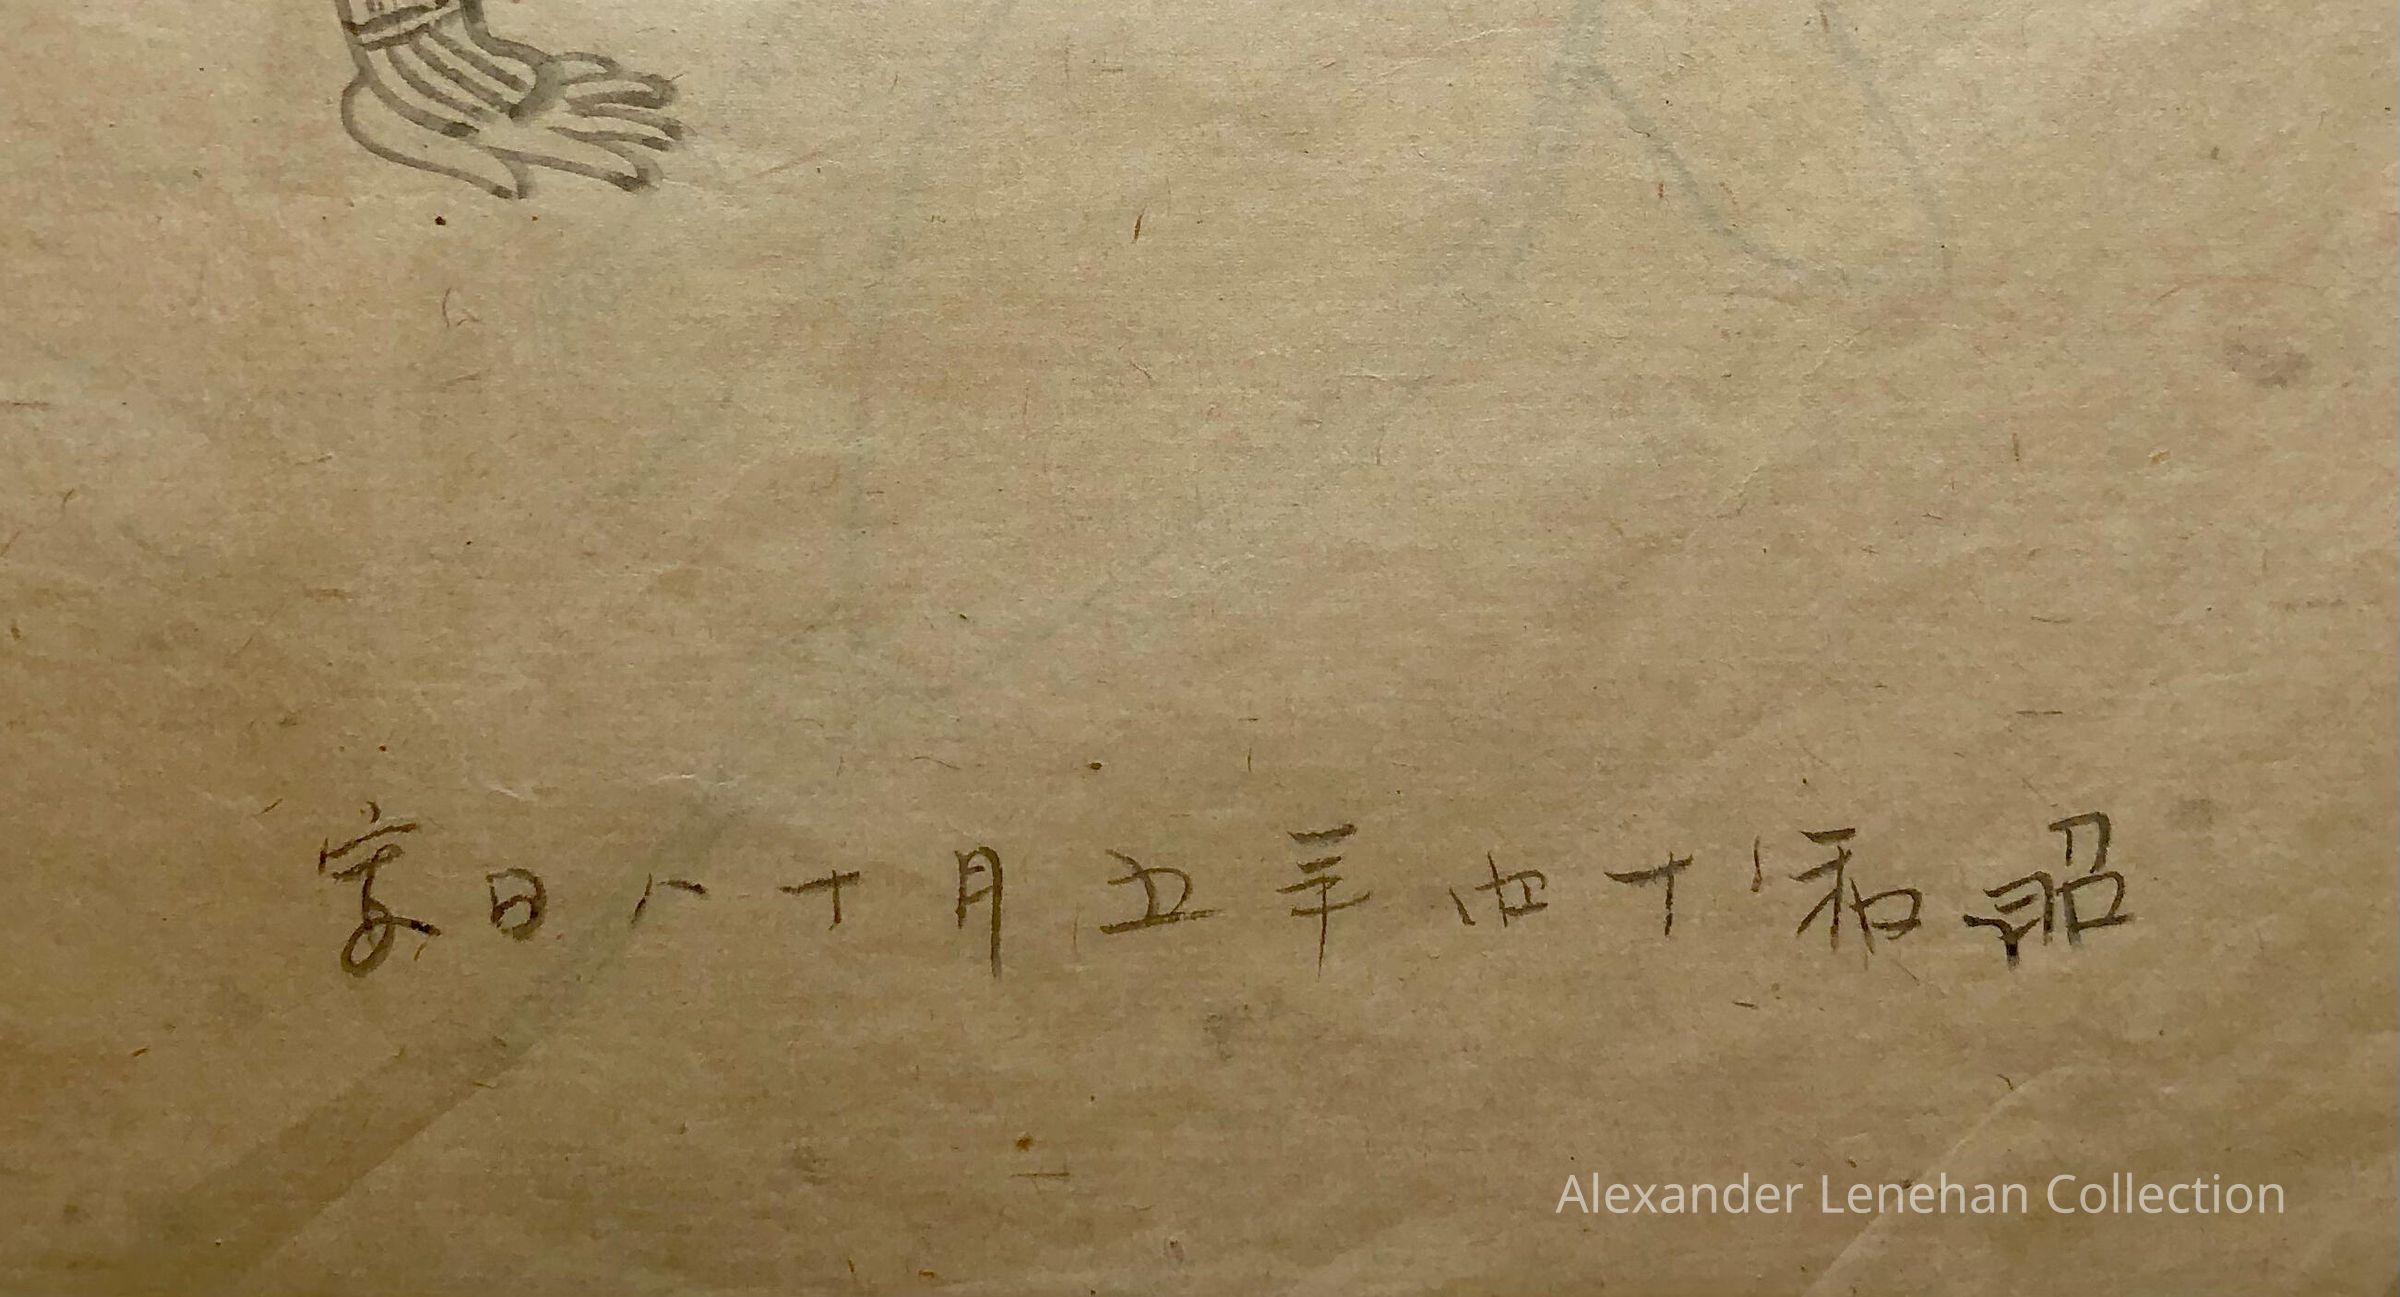 昭和十四年五月十八日写
Alexander Lenehan Collection